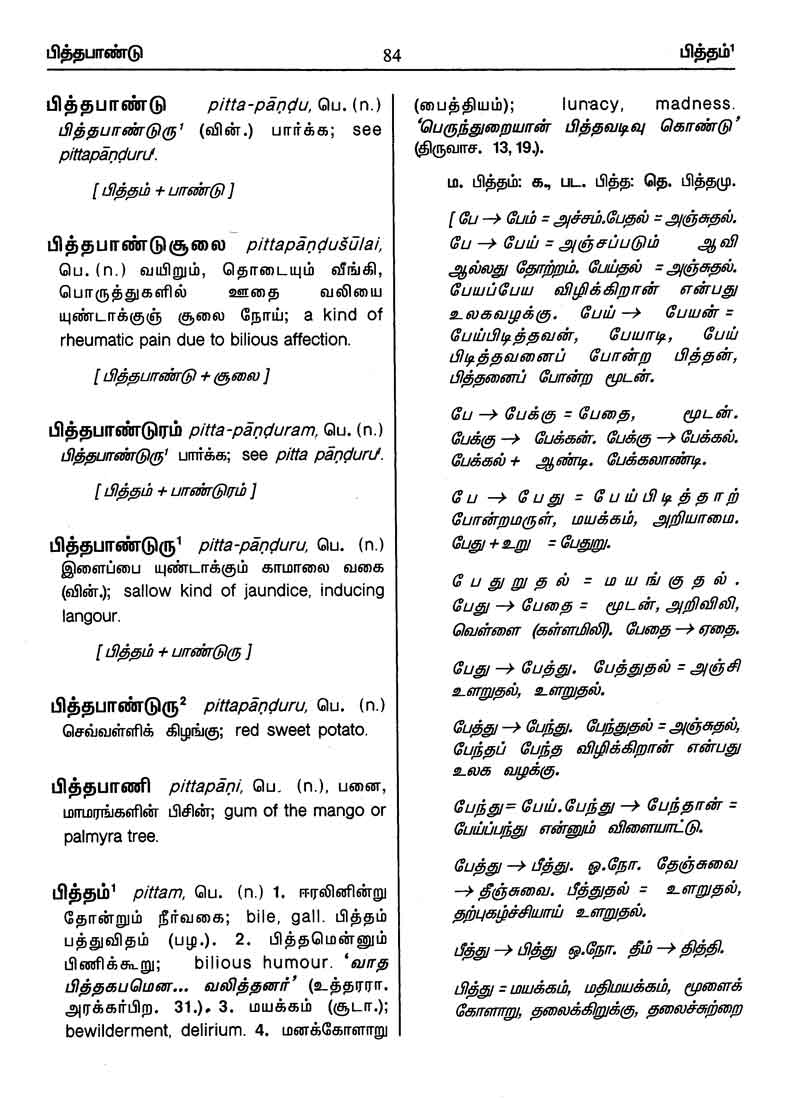 பித்தபாண்டு
84
பித்தம்¹
பித்தபாண்டு pitta-pāṇḍu, பெ. (n.)
பித்தபாண்டுரு¹ (வின்.) பார்க்க; see
pittapāṇḍuru¹.
[ பித்தம் + பாண்டு ]
பித்தபாண்டுசூலை pittapāṇḍušūlai,
பெ. (n.) வயிறும், தொடையும் வீங்கி,
பொருத்துகளில் ஊதை வலியை
யுண்டாக்குஞ் சூலை நோய்; a kind of
rheumatic pain due to bilious affection.
[ பித்தபாண்டு + சூலை ]
பித்தபாண்டுரம் pitta-pāṇḍuram, பெ. (n.)
பித்தபாண்டுரு¹ பார்க்க; see pitta pāṇḍuru¹.
[ பித்தம் + பாண்டுரம் ]
பித்தபாண்டுரு¹ pitta-pāṇḍuru, பெ. (n.)
இளைப்பை யுண்டாக்கும் காமாலை வகை
(வின்.); sallow kind of jaundice, inducing
langour.
[ பித்தம் + பாண்டுரு ]
பித்தபாண்டுரு² pittapāṇḍuru, பெ. (n.)
செவ்வள்ளிக் கிழங்கு; red sweet potato.
பித்தபாணி pittapāṇi, பெ. (n.), பனை,
மாமரங்களின் பிசின்; gum of the mango or
palmyra tree.
பித்தம்¹ pittam, பெ. (n.) 1. ஈரலினின்று
தோன்றும் நீர்வகை; bile, gall. பித்தம்
பத்துவிதம் (பழ.). 2. பித்தமென்னும்
பிணிக்கூறு; bilious humour. 'வாத
பித்தகபமென... வலித்தனர்' (உத்தரரா.
அரக்கர்பிற. 31.). 3. மயக்கம் (சூடா.);
bewilderment, delirium. 4. மனக்கோளாறு
(பைத்தியம்); lunacy, madness.
'பெருந்துறையான் பித்தவடிவு கொண்டு'
(திருவாச. 13, 19.).
ம. பித்தம்: க., பட. பித்த: தெ. பித்தமு.
[ பே → பேம் = அச்சம்.பேதல் = அஞ்சுதல்.
பே → பேய் = அஞ்சப்படும் ஆவி
ஆல்லது தோற்றம். பேய்தல் = அஞ்சுதல்.
பேயப்பேய விழிக்கிறான் என்பது
உலகவழக்கு. பேய் → பேயன் =
பேய்பிடித்தவன், பேயாடி, பேய்
பிடித்தவனைப் போன்ற பித்தன்,
பித்தனைப் போன்ற மூடன்.
பே → பேக்கு = பேதை, மூடன்.
பேக்கு → பேக்கன். பேக்கு → பேக்கல்.
பேக்கல் + ஆண்டி. பேக்கலாண்டி.
பே → பேது = பேய்பிடித்தாற்
போன்றமருள், மயக்கம், அறியாமை.
பேது + உறு = பேதுறு.
பேதுறுதல் = மயங்குதல்.
பேது → பேதை = மூடன், அறிவிலி,
வெள்ளை (கள்ளமிலி). பேதை → ஏதை.
பேது → பேத்து. பேத்துதல் = அஞ்சி
உளறுதல், உளறுதல்.
பேத்து → பேந்து. பேந்துதல் = அஞ்சுதல்,
பேந்தப் பேந்த விழிக்கிறான் என்பது
உலக வழக்கு.
பேந்து = பேய்.பேந்து → பேந்தான் =
பேய்ப்பந்து என்னும் விளையாட்டு.
பேத்து → பீத்து. ஒ.நோ. தேஞ்சுவை
→ தீஞ்சுவை. பீத்துதல் = உளறுதல்,
தற்புகழ்ச்சியாய் உளறுதல்.
பீத்து → பித்து ஒ.நோ. தீம் → தித்தி.
பித்து = மயக்கம், மதிமயக்கம், மூளைக்
கோளாறு, தலைக்கிறுக்கு, தலைச்சுற்றை